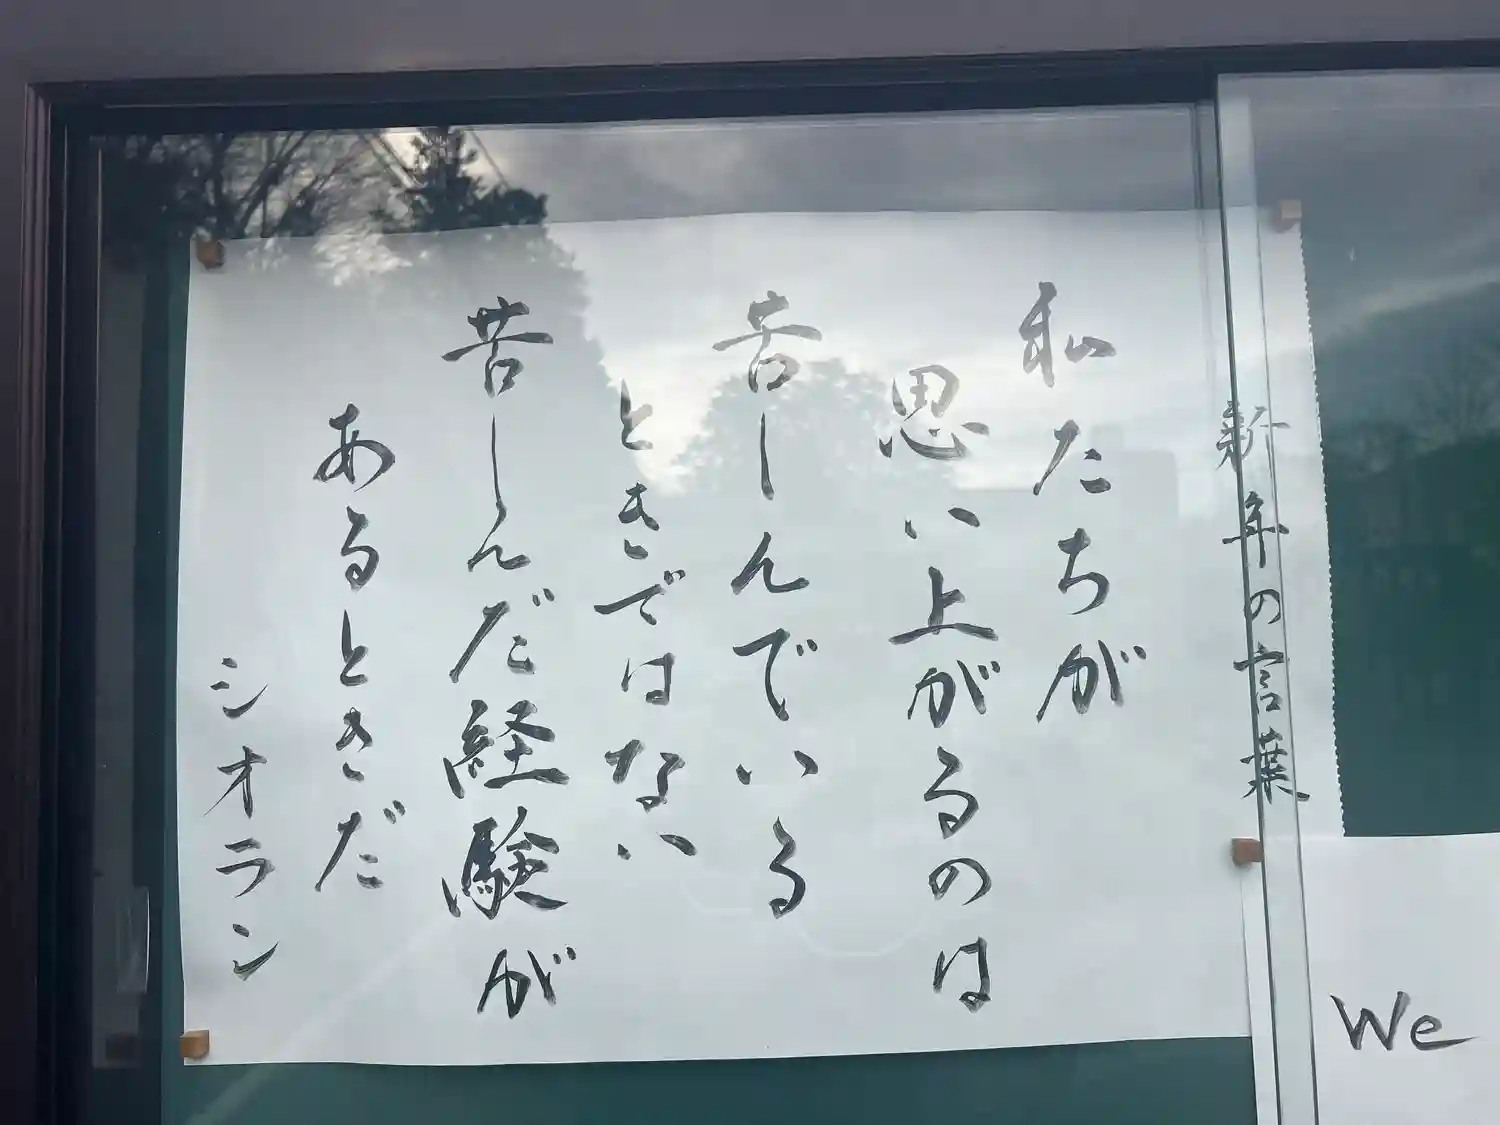 新年の言葉
私たちが
思い上がるのは
苦しんでいる
ときではない
苦しんだ経験が
あるときだ
シオラン
We